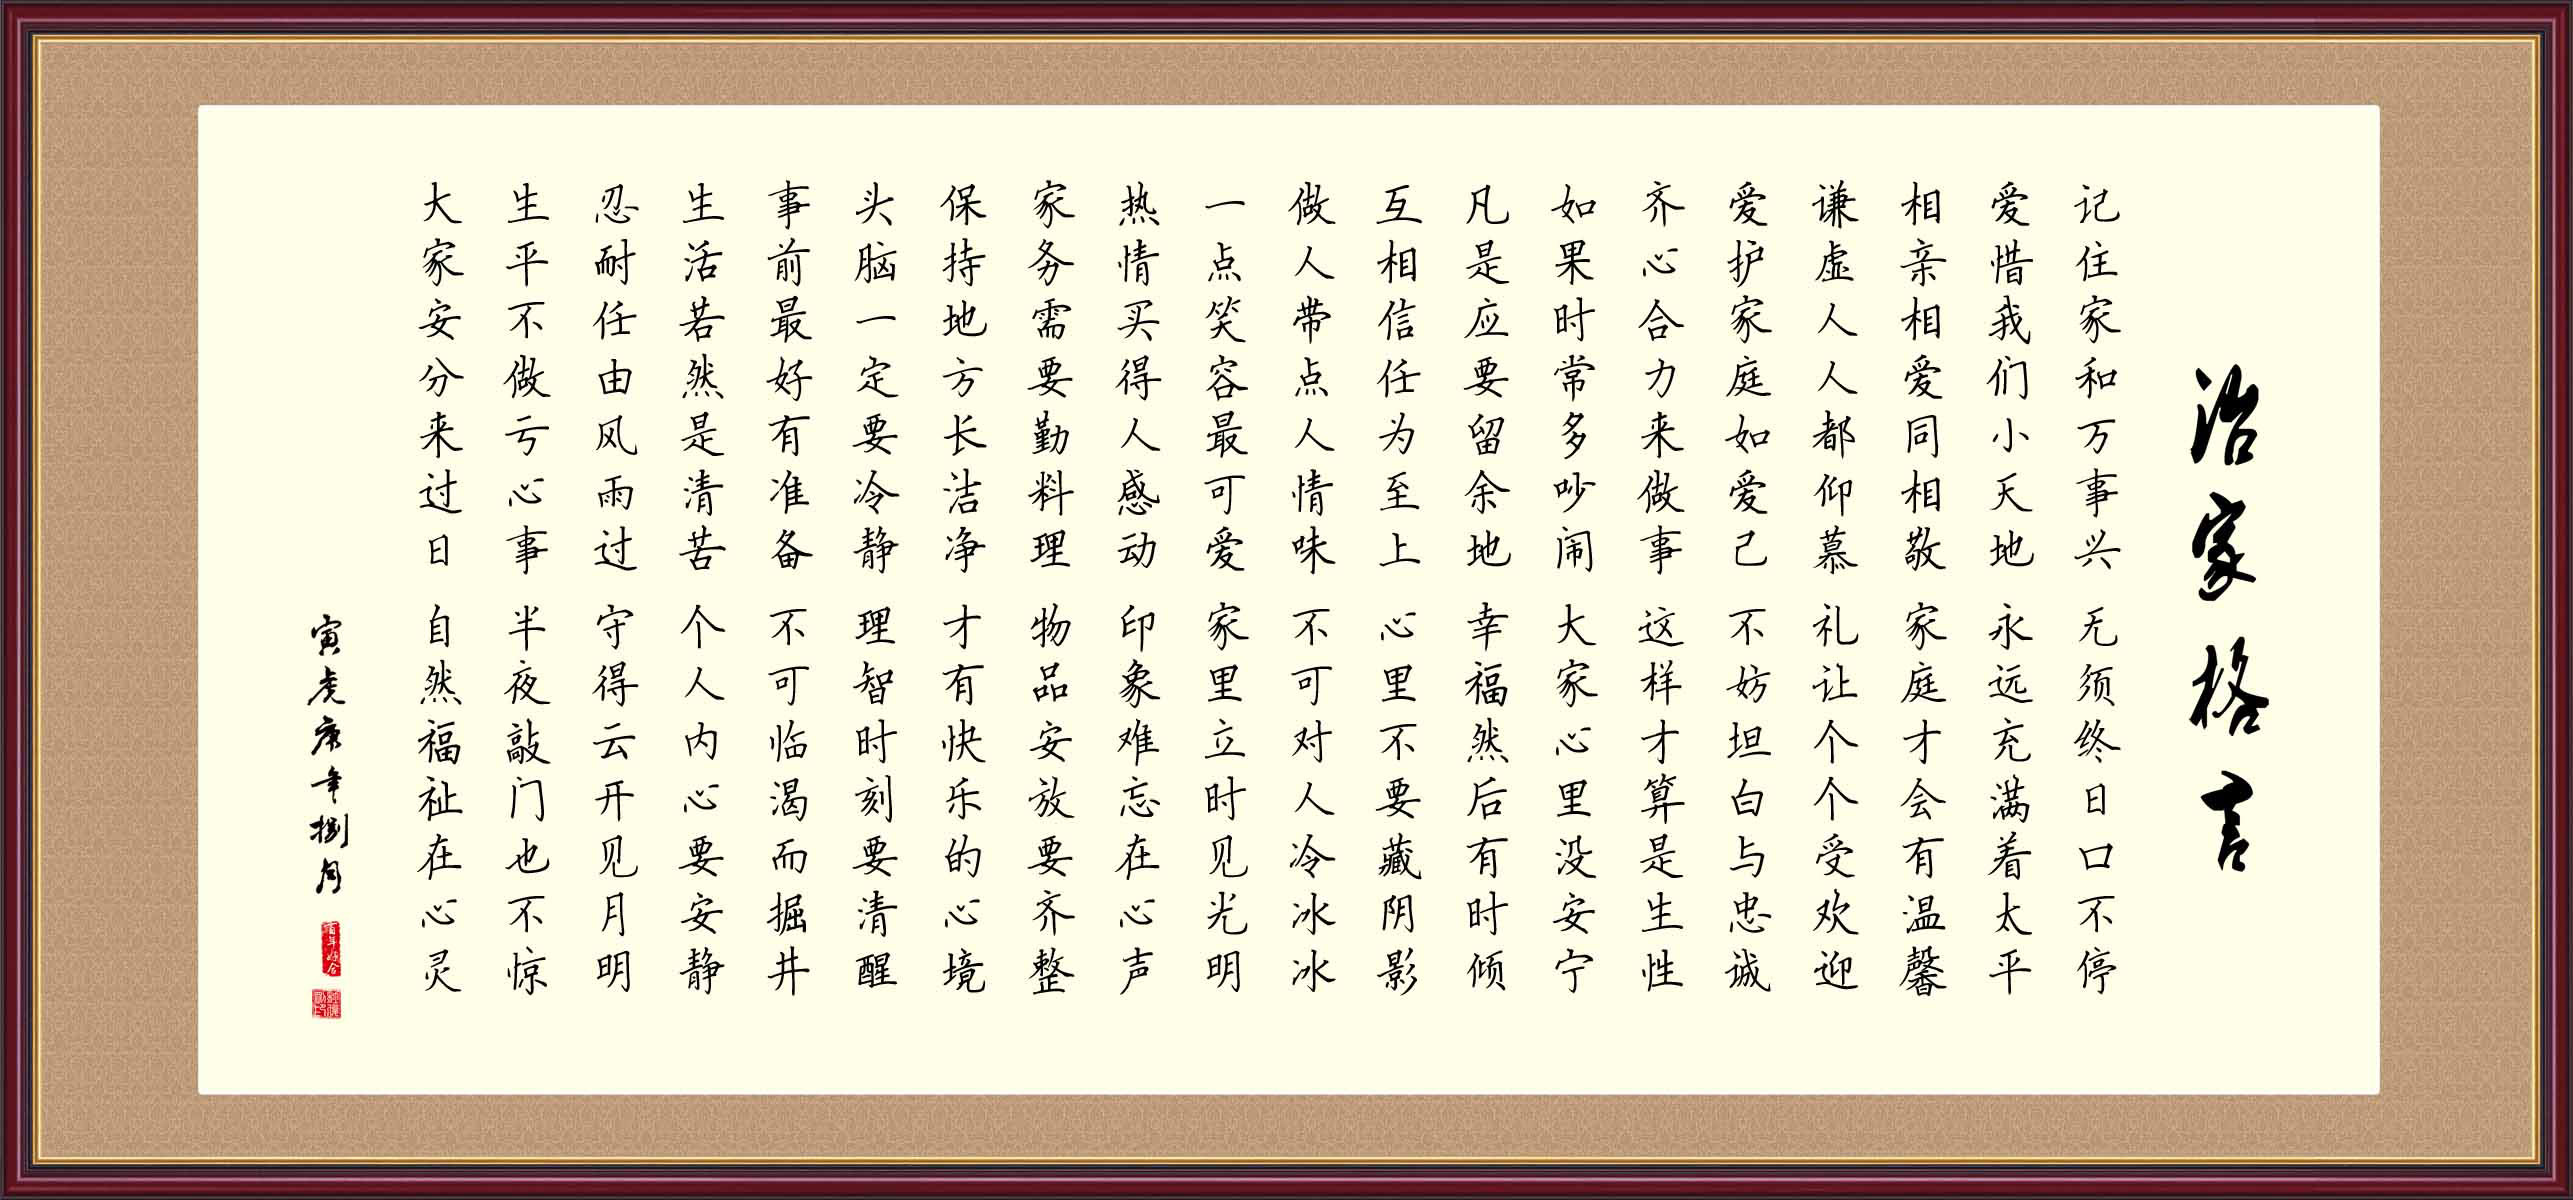 治家格言
记住家和万事兴 无须终日口不停
爱惜我们小天地 永远充满着太平
相亲相爱同相敬 家庭才会有温馨
谦虚人人都仰慕 礼让个个受欢迎
爱护家庭如爱己 不妨坦白与忠诚
齐心合力来做事 这样才算是生性
如果时常多吵闹 大家心里没安宁
凡是应要留余地 幸福然后有时倾
互相信任为至上 心里不要藏阴影
做人带点人情味 不可对人冷冰冰
一点笑容最可爱 家里立时见光明
热情买得人感动 印象难忘在心声
家务需要勤料理 物品安放要齐整
保持地方长洁净 才有快乐的心境
头脑一定要冷静 理智时刻要清醒
事前最好有准备 不可临渴而掘井
生活若然是清苦 个人内心要安静
忍耐任由风雨过 守得云开见月明
生平不做亏心事 半夜敲门也不惊
大家安分来过日 自然福祉在心灵
寅虎庚年捌月